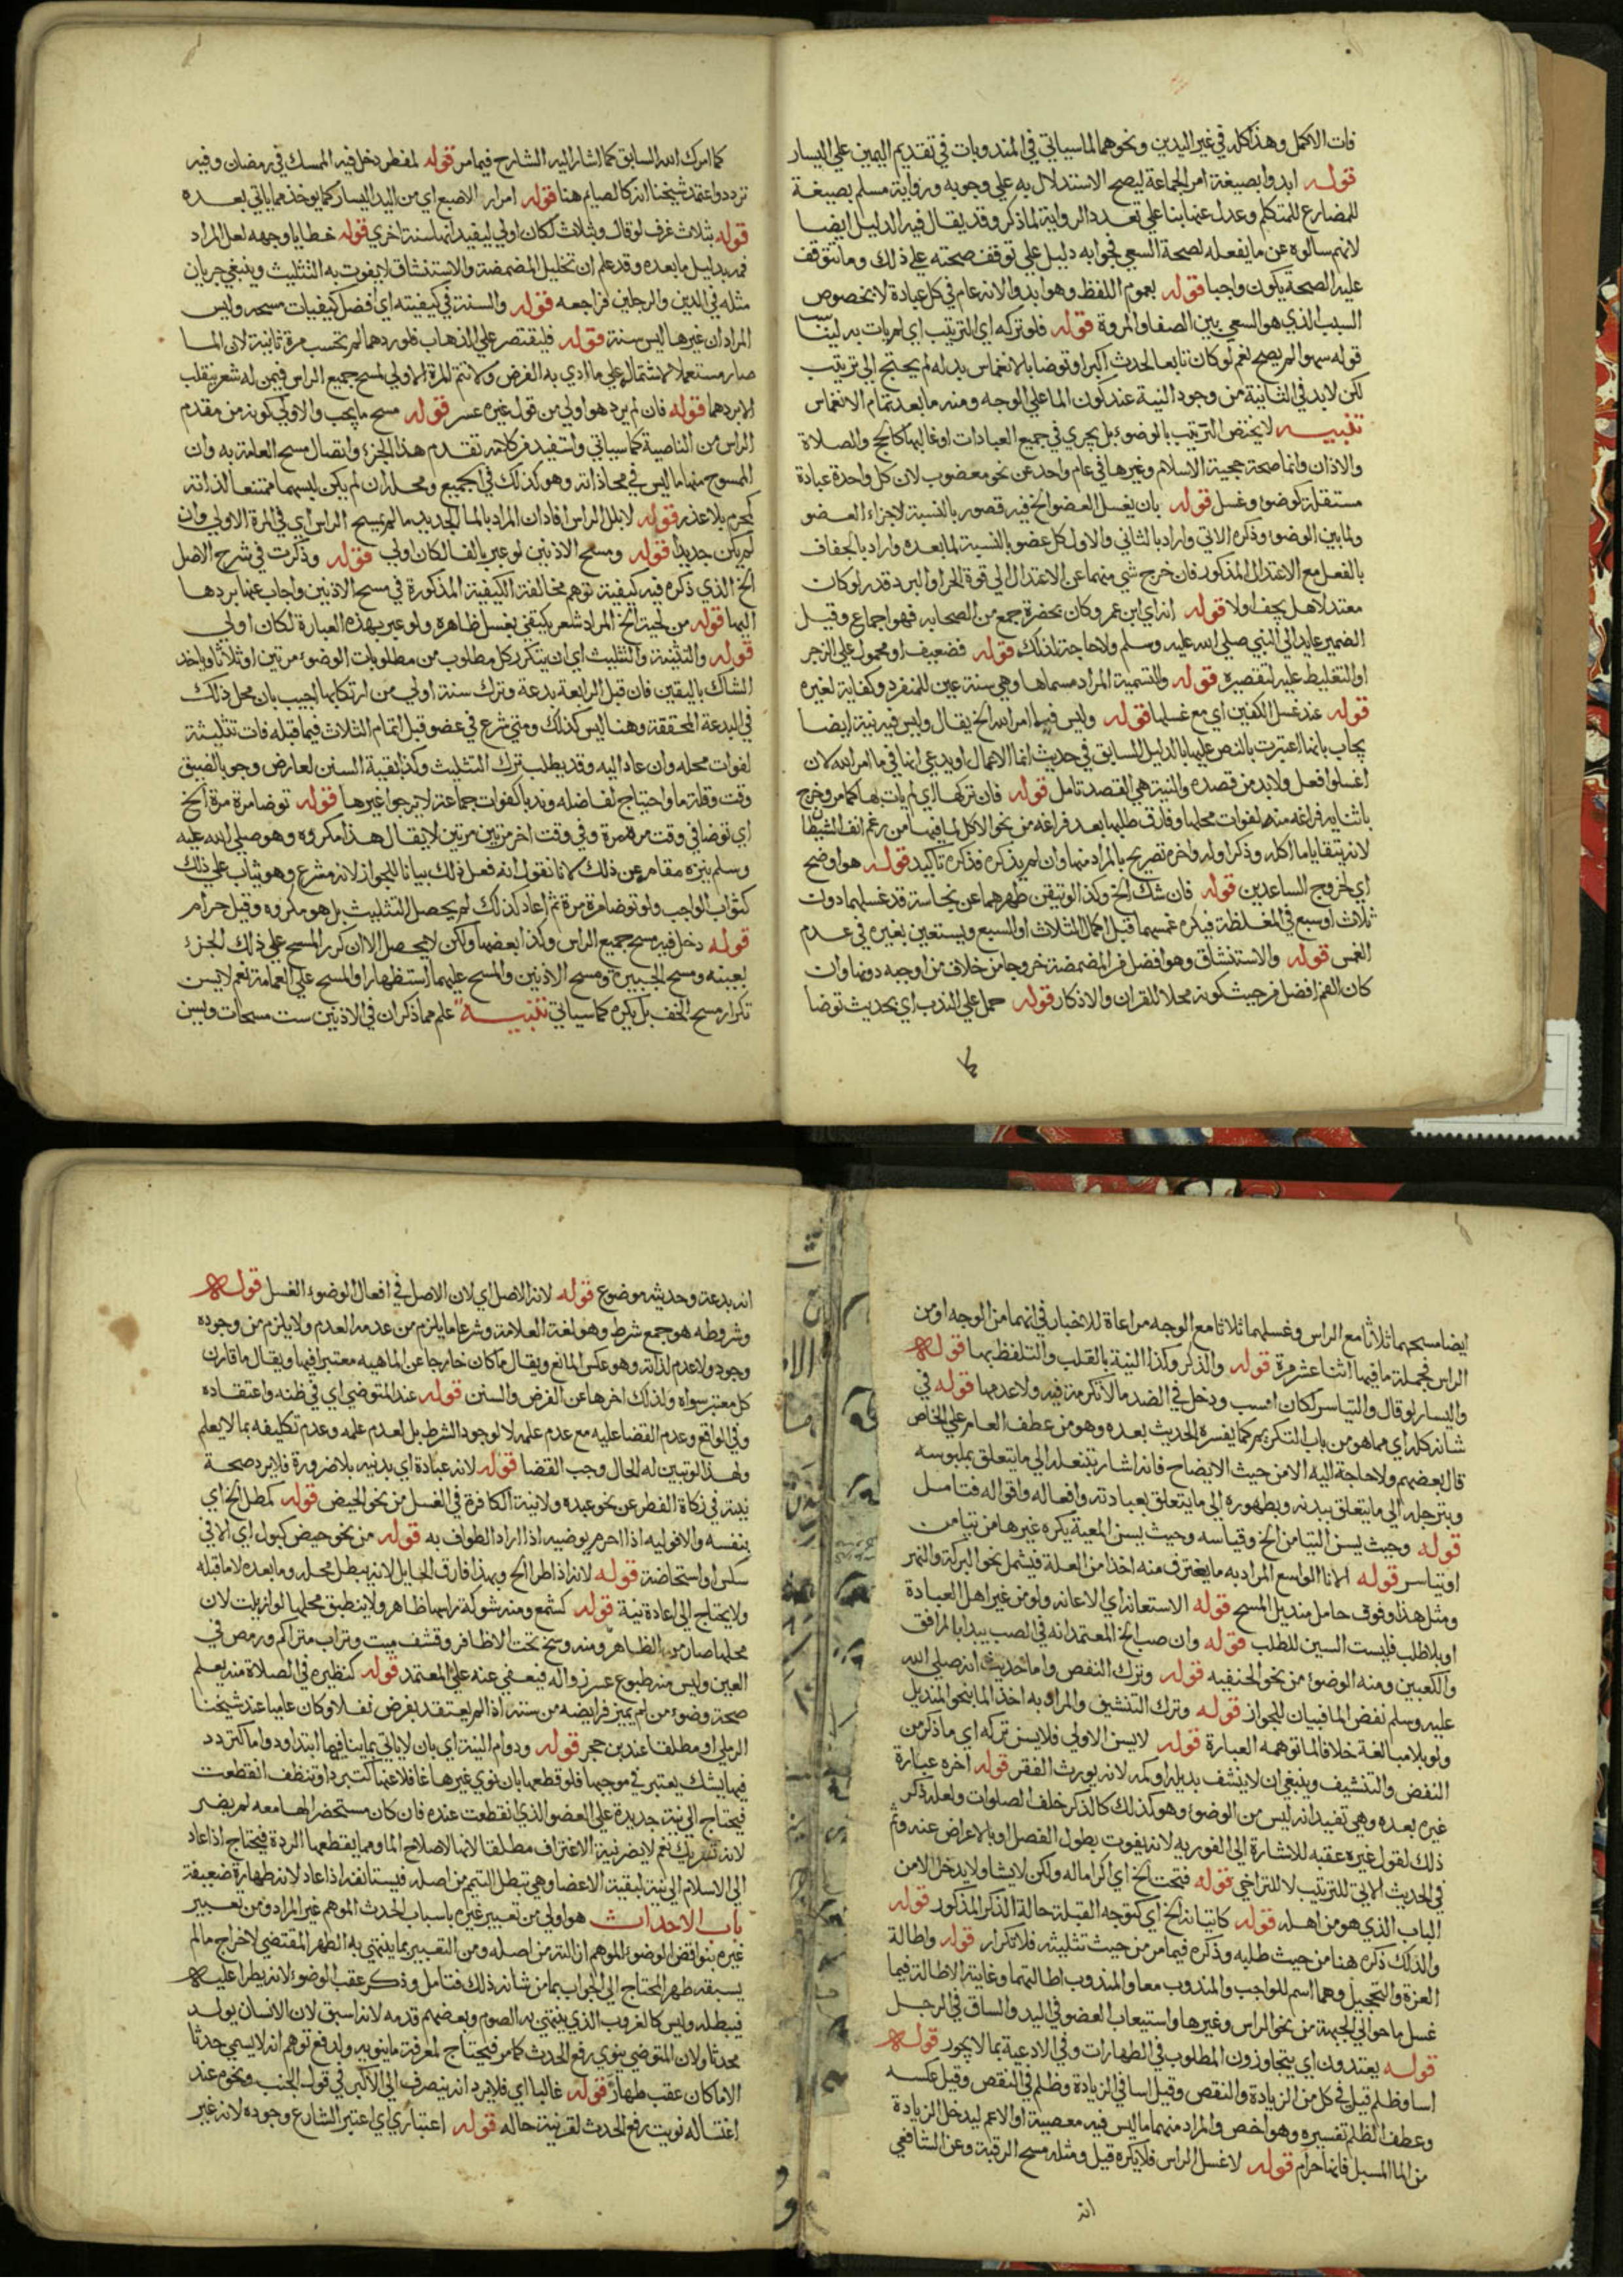 فات الاكمل وهذا كله في غير اليدين ونحوهما لما سياتي في المندوبات في تقديم اليمين علي اليسار
قوله ابدوا بصيغة امر الجماعة ليصح الاستدلال به علي وجوبه ورواية مسلم بصيغة
للمضارع للمتكلم وعدل عنها بنا علي تعدد الرواية لما ذكر وقد يقال فيه الدليل ايضا
لانهم سالوه عن ما يفعله لصحة السعي فجوابه دليل علي توقف صحته علي ذلك وما تتوقف
عليه الصحة يكون واجبا قوله بعموم اللفظ وهو ابدوا لانه عام في كل عبادة لا بخصوص
السبب الذي هو السعي بين الصفا والمروة قوله فلو تركه اي الترتيب اي لم يات به
قوله سهوا لم يصح نعم لو كان تابعا لحدث اكبر او توضا بالانغماس بدله لم يحتج الي ترتيب
لكن لابد في الثانية من وجود النية عند كون الما علي الوجه ومنه ما بعد تمام الانغماس
تنبيه لا يختص الترتيب بالوضوء بل يجري في جميع العبادات او غالبها كالحج والصلاة
والاذان وانما صحة حجية الاسلام وغيرها في عام واحد عن نحو معضوب لان كل واحدة عبادة
مستقلة كوضوء وغسل قوله بان يغسل العضو الخ فيه قصور بالنسبة لاجزاء العضو
ولما بين الوضوء وذكره الاتي واراد بالثاني والاول كل عضو بالنسبة لما بعده واراد بالجفاف
بالفعل مع الاعتدال المذكور فان خرج شي منهما عن الاعتدال الي قوة الحر او البرد قدر لو كان
معتدلا هل يجف اولا قوله انه اي ابن عمر وكان بحضرة جمع من الصحابه فهو اجماع وقيل
الضمير عايد الي النبي صلي الله عليه وسلم ولا حاجة لذلك قوله فضعيف او محمول علي الزجر
او التغليظ عليه لتقصيره قوله والتسمية المراد مسماها وهي سنة عين للمنفرد وكفاية لغيره
قوله عند غسل الكفين اي مع غسلهما قوله وليس فيما امر الله الخ يقال وليس فيه نية ايضا
يجاب بانها اعتبرت بالنص عليها بالدليل السابق في حديث انما الاعمال او يدعي انها في ما امر الله لان
اغسلوا فعل ولابد من قصده والنية هي القصد تامل قوله فان تركها اي لم يات بها كما مر وخرج
باثنايه فراغه منه لفوات محلها وفارق طلبها بعد فراغه من نحو الاكل لما فيها من رغم انف الشيطان
لانه يتقايا ما اكله وذكر اوله واخره تصريح بالمراد منها وان لم يذكره فذكره تاكيد قوله هو اوضح
اي لخروج الساعدين قوله فان شك الخ وكذا لو تيقن طهرهما عن نجاسة قد غسلهما دون
ثلاث او سبع في المغلظة فيكره غمسهما قبل اكمال الثلاث او السبع ويستعين بغيره في عدم
الغمس قوله والاستنشاق وهو افضل من المضمضة خروجا من خلاف من اوجبه دونها وان
كان الفم افضل من حيث كونه محلا للقران والاذكار قوله حملا علي الندب اي بحديث توضا
كما امرك الله السابق كما اشار اليه الشارح فيما مر قوله لمفطر دخل فيه الممسك في رمضان وفيه
تردد واعتمد شيخنا انه كالصايم هنا قوله امرار الاصبع اي من اليد اليسار كما يوخذ مما ياتي بعده
قوله بثلاث غرف لو قال وبثلاث لكان اولي ليفيد انها سنة اخري قوله خطايا وجهه لعل المراد
فمه بدليل ما بعده وقد علم ان تخليل المضمضة والاستنشاق لا يفوت به التثليث وينبغي جريان
مثله في اليدين والرجلين فراجعه قوله والسنة في كيفيته اي افضل كيفيات مسحه وليس
المراد ان غيرها ليس سنة قوله فليقتصر علي الذهاب فلو ردهما لم تحسب مرة ثانية لان الما
صار مستعملا لاشتماله علي ما ادي به الفرض ولا تتم المرة الاولي لمسح جميع الراس فيمن له شعر ينقلب
الا بردهما قوله فان لم يرد هو اولي من قول غيره عسر قوله مسح ما يجب والاولي كونه من مقدم
الراس من الناصية كما سياتي واستفيد من كلامه تقدم هذا الجزء واتصال مسح العامة به وان
الممسوح منها ما ليس في محاذاته وهو كذلك في الجميع ومحله ان لم يكن لبسها ممتنعا لذاته
كمحرم بلا عذر قوله لا بلل الراس افاد ان المراد بالما الجديد ما لم يمسح الراس اي في المرة الاولي وان
لم يكن جديدا قوله ومسح الاذنين لو عبر بالفا لكان اولي قوله وذكرت في شرح الاصل
الخ الذي ذكره فيه كيفية توهم مخالفة الكيفية المذكورة في مسح الاذنين واجاب عنها بردها
اليها قوله من لحية الخ المراد شعر يكتفي بغسل ظاهره ولو عبر بهذه العبارة لكان اولي
قوله والتثنية والتثليث اي ان يتكرر كل مطلوب من مطلوبات الوضوء مرتين او ثلاثا وياخذ
الشاك باليقين فان قيل الرابعة بدعة وترك سنة اولي من ارتكابها اجيب بان محل ذلك
في البدعة المحققة وهنا ليس كذلك ومتي شرع في عضو قبل اتمام الثلاث فيما قبله فات تثليثه
لفوات محله وان عاد اليه وقد يطلب ترك التثليث وكذا بقية السنن لعارض وجوبا لضيق
وقت وقلة ما واحتياج لفاضله وندبا كفوات جماعة لا يرجوا غيرها قوله توضا مرة مرة الخ
اي توضا في وقت مرة مرة وفي وقت اخر مرتين مرتين لا يقال هذا مكروه وهو صلي الله عليه
وسلم ينزه مقامه عن ذلك لانا نقول انه فعل ذلك بيانا للجواز لانه مشرع وهو يثاب علي ذلك
كثواب الواجب ولو توضا مرة مرة ثم اعاد كذلك لم يحصل التثليث بل هو مكروه وقيل حرام
قوله دخل فيه مسح جميع الراس وكذا بعضها ولكن لا يحصل الا ان كرر المسح علي ذلك الجزء
بعينه ومسح الجبيرة ومسح الاذنين والمسح عليهما استظهارا والمسح علي العمامة نعم لا يسن
تكرار مسح الخف بل يكره كما سياتي تنبيه علم مما ذكر ان في الاذنين ست مسحات ويسن
ايضا مسحهما ثلاثا مع الراس وغسلهما ثلاثا مع الوجه مراعاة للاخبار في انهما من الوجه او من
الراس فجملة ما فيها اثنا عشر مرة قوله والذكر وكذا النية بالقلب والتلفظ بها قوله
واليسار لو قال والتياسر لكان انسب ودخل في الضد ما لا تكرمة فيه ولا عدمها قوله في
شانه كله اي مما هو من باب التكريم كما يفسره الحديث بعده وهو من عطف العام علي الخاص
قال بعضهم ولا حاجة اليه الا من حيث الايضاح فانه اشار بتنعله الي ما يتعلق بملبوسه
وبترجله الي ما يتعلق ببدنه وبطهوره الي ما يتعلق بعبادته وافعاله واقواله فتامل
قوله وحيث يسن التيامن الخ وقياسه وحيث يسن المعية يكره غيرها من تيامن
او تياسر قوله الانا الواسع المراد به ما يغترف منه اخذا من العلة فيشمل نحو البركة والنهر
ومثل هذا وفوق حامل منديل المسح قوله الاستعانة اي الاعانه ولو من غير اهل العبادة
او بلا طلب فليست السين للطلب قوله وان صب الخ المعتمد انه في الصب يبدا بالمرافق
والكعبين ومنه الوضوء من نحو الحنفيه قوله وترك النفض واما حديث انه صلي الله
عليه وسلم نفض الما فبيان للجواز قوله وترك التنشيف والمراد به اخذ الما بنحو المنديل
ولو بلا مبالغة خلافا لما توهمه العبارة قوله لا يسن الاولي فلا يسن تركه اي ما ذكر من
النفض والتنشيف وينبغي ان لا ينشف بذيله او كمه لانه يورث الفقر قوله اخره عبارة
غيره بعده وهي تفيد انه ليس من الوضوء وهو كذلك كالذكر خلف الصلوات ولعله ذكر
ذلك لقول غيره عقبه للاشارة الي الفورية لانه يفوت بطول الفصل او بالاعراض عنه وثم
في الحديث الاتي للترتيب لا للتراخي قوله فتحت الخ اي اكراما له ولكن لا يشا ولا يدخل الا من
الباب الذي هو من اهله قوله كاتيانه الخ اي كتوجه القبلة حالة الذكر المذكور قوله
والدلك ذكره هنا من حيث طلبه وذكره فيما مر من حيث تثليثه فلا تكرار قوله واطالة
الغرة والتحجيل وهما اسم للواجب والمندوب معا والمندوب اطالتهما وغاية الاطالة فيها
غسل ما حوالي الجبهة من نحو الراس وغيرها واستيعاب العضو في اليد والساق في الرجل
قوله يعتدون اي يتجاوزون المطلوب في الطهارات وفي الادعية بما لا يجوز قوله
اسا وظلم قيل في كل من الزيادة والنقص وقيل اسا في الزيادة وظلم في النقص وقيل عكسه
وعطف الظلم تفسيره وهو اخص والمراد منهما ما ليس فيه معصية او الاعم ليدخل الزيادة
من الما المسبل فانها حرام قوله لا غسل الراس فلا يكره قيل ومثله مسح الرقبة وعن الشافعي
انه
انه بدعة وحديثه موضوع قوله لانه الاصل اي لان الاصل في افعال الوضوء الغسل قوله
وشروطه هو جمع شرط وهو لغة العلامة وشرعا ما يلزم من عدمه العدم ولا يلزم من وجوده
وجود ولا عدم لذاته وهو عكس المانع ويقال ما كان خارجا عن الماهيه معتبرا فيها ويقال ما قارن
كل معتبر سواه ولذلك اخرها عن الفرض والسنن قوله عند المتوضي اي في ظنه واعتقاده
وفي الواقع وعدم القضا عليه مع عدم علمه لا لوجود الشرط بل لعدم علمه وعدم تكليفه بما لا يعلم
ولهذا لو تبين له الحال وجب القضا قوله لانه عبادة اي بدنيه بلا ضرورة فلا يرد صحة
نيته في زكاة الفطر عن نحو عبده ولا نية الكافرة في الغسل من نحو الحيض قوله كمطل الخ اي
بنفسه والا فوليه اذا احرم يوضيه اذا اراد الطواف به قوله من نحو حيض كبول اي الا في
سلس او استحاضة قوله لانه اذا طرا الخ وبهذا فارق الحايل لانه يبطل محله وما بعده لا ما قبله
ولا يحتاج الي اعادة نية قوله كشمع ومنه شوكة راسها ظاهر ولا ينطبق محلها لو ازيلت لان
محلها صار من الظاهر ومنه وسخ تحت الاظافر وقشف ميت وتراب متراكم ورمص في
العين وليس منه طبوع عسر زواله فيعفي عنه علي المعتمد قوله كنظيره في الصلاة منه يعلم
صحة وضوء من لم يميز فرايضه من سننه اذا لم يعتقد بفرض نفلا وكان عاميا عند شيخنا
الرملي او مطلقا عند بن حجر قوله ودوام النية اي بان لا ياتي بما ينافيها ابتدا ودواما كتردد
فيها بشك يعتبر في موجبها فلو قطعها بان نوي غيرها غافلا عنها كتبرد او تنظف انقطعت
فيحتاج الي نية جديدة علي العضو الذي انقطعت عنده فان كان مستحضرا لها معه لم يضر
لانه تشريك نعم لا يضر نية الاغتراف مطلقا لانها لاصلاح الما ومما يقطعها الردة فيحتاج اذا عاد
الي الاسلام الي نية لبقية الاعضا وهي تبطل التيمم من اصله فيستانفه اذا عاد لانه طهارة ضعيفة
باب الاحداث هو اولي من تعبير غيره باسباب الحدث الموهم غير المراد ومن تعبير
غيره بنواقض الوضوء الموهم ازالته من اصله ومن التعبير بما ينتهي به الطهر المقتضي لاخراج ما لم
يسبقه طهر المحتاج الي الجواب بما من شانه ذلك فتامل وذكر عقب الوضوء لانه يطرا عليه
فيبطله وليس كالغروب الذي ينتهي به الصوم وبعضهم قدمه لانه اسبق لان الانسان يولد
محدثا ولان المتوضي ينوي رفع الحدث كما مر فيحتاج لمعرفة ما ينويه ولدفع توهم انه لا يسمي حدثا
الا ما كان عقب طهارة قوله غالبا اي فلا يرد انه ينصرف الي الاكبر في قول الجنب ونحوه عند
اغتساله نويت رفع الحدث لقرينة حاله قوله اعتباري اي اعتبر الشارع وجوده لانه غير